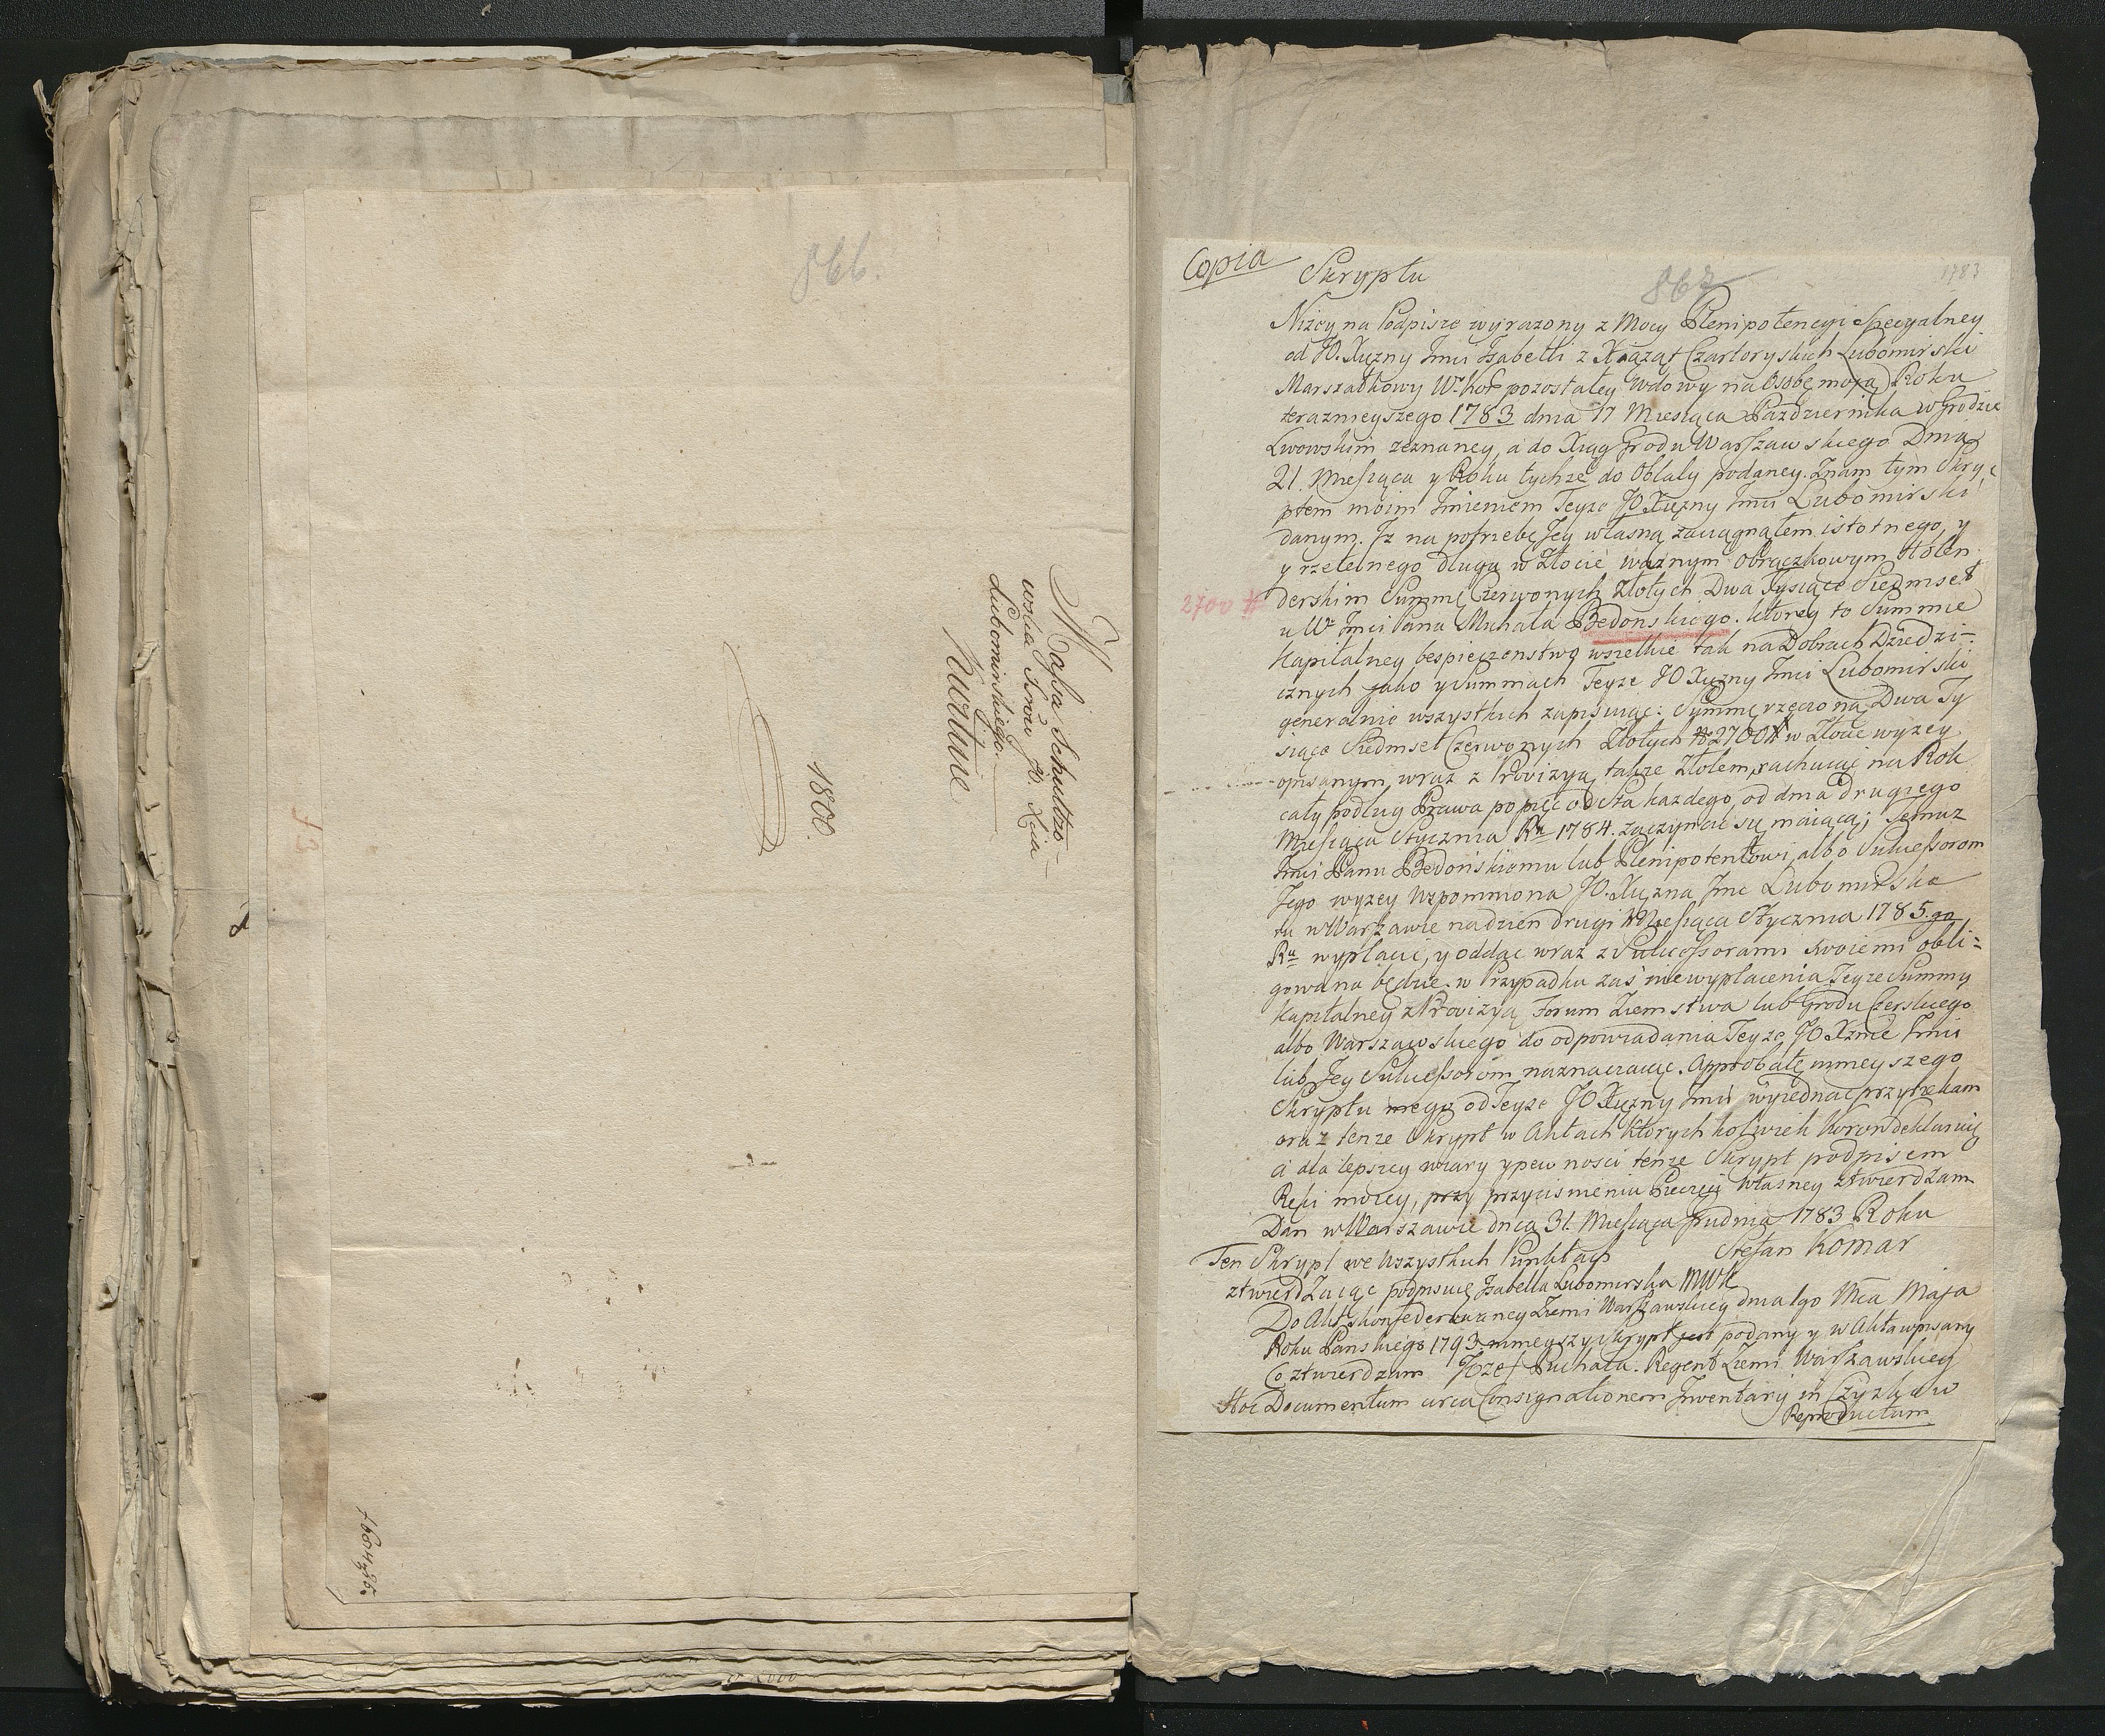 866.
Majsa Schultzo
wsca Krow JO. Xcia
Lubomirskiego
Kwitunie
1800.
2000
Copia Skryptu
867
1783
Niżey na Podpisie wyrażony z Mocy Plenipotencyi Specyalney
od JO. Xiężny Jmći Izabelli z Xiążąt Czartoryskich Lubomirski
Marszałkowy W. Kor. pozostałey Wdowy na Osobę moją Roku
teraznieyszego 1783 dnia 17 Miesiąca Pazdziernika w Grodzie
Lwowskim zeznaney, a do Xiąg Grodu Warszawskiego Dnia
21. Miesiąca y Roku tychże do Oblaty podaney. Znam tym Skry-
ptem moim Jmieniem Teyże JO Xiężny Jmci Lubomirski
danym. Iż na potrzebę Jey własną zaciągnąłem istotnego, y
y rzetelnego długu w Złocie ważnym Obrączkowym Holen
derskim Summę Czerwonych Złotych Dwa Tysiące Siedmset
2700 #
u W. Jmci Pana Michała Bedonskiego. Ktorey to Summie
Kapitalney bespieczenstwo wszelkie tak na Dobrach Dziedzi-
cznych jako y Summach Teyże JO Xiężny Jmci Lubomirski
generalnie wszystkich zapisuiąc: Summę rzeczoną Dwa Ty
siące Siedmset Czerwonych Złotych # 2700 # w Złocie wyżey
opisanym wraz z Prowizyą także Złotem, rachuiąc na Rok
cały podług Prawa po pięć od Sta każdego, od dnia drugiego
Miesiąca Stycznia Ru 1784. zaczynać się maiącą; Temuż
Jmci Panu Bedońskiemu lub Plenipotentowi albo Sukcessorom
Jego wyżey Wzpomniona JO. Xiężna Jmc Lubomirska
tu w Warszawie na dzień drugi Miesiąca Stycznia 1785.go
Ru wypłacić, y oddać wraz z Sukcessorami swoiemi obli-
gowana będzie. w Przypadku zaś niewypłacenia Teyże Summy
Kapitalney z Prowizyą Forum Ziemstwa lub Grodu Czerskiego
albo Warszawskiego do odpowiadania Teyże JO Xżnie Jmci
lub Jey Sukcessorom naznaczaiąc. Approbatę ninieyszego
Skryptu mego od Teyże JO Xiężny Jmci wyiednać przyrzekam
oraz tenże Skrypt w Aktach Ktorych kolwiek Koron deklaruię
a dla lepszey wiary y pewności tenże Skrypt podpisem
Ręki moiey, przy przyciśnieniu Pieczęci Własney ztwierdzam
Dan w Warszawie dnia 31. Miesiąca Grudnia 1783 Roku
Stefan Komar
Ten Skrypt we Wszystkich Punktach
ztwierdzaiąc podpisuię Izabella Lubomirska MWK
Do Akt Skonfederowaney Ziemi Warszawskiey dnia 1go Mca Maja
Roku Panskiego 1793 ninieyszy Skrypt jest podany y w Akta wpisany
Co ztwierdzam Jozef Puchała. Regent Ziemi Warszawskiey
Hoc Documentum circa Consignationem Inventarij in Czyzkow
Reproductum